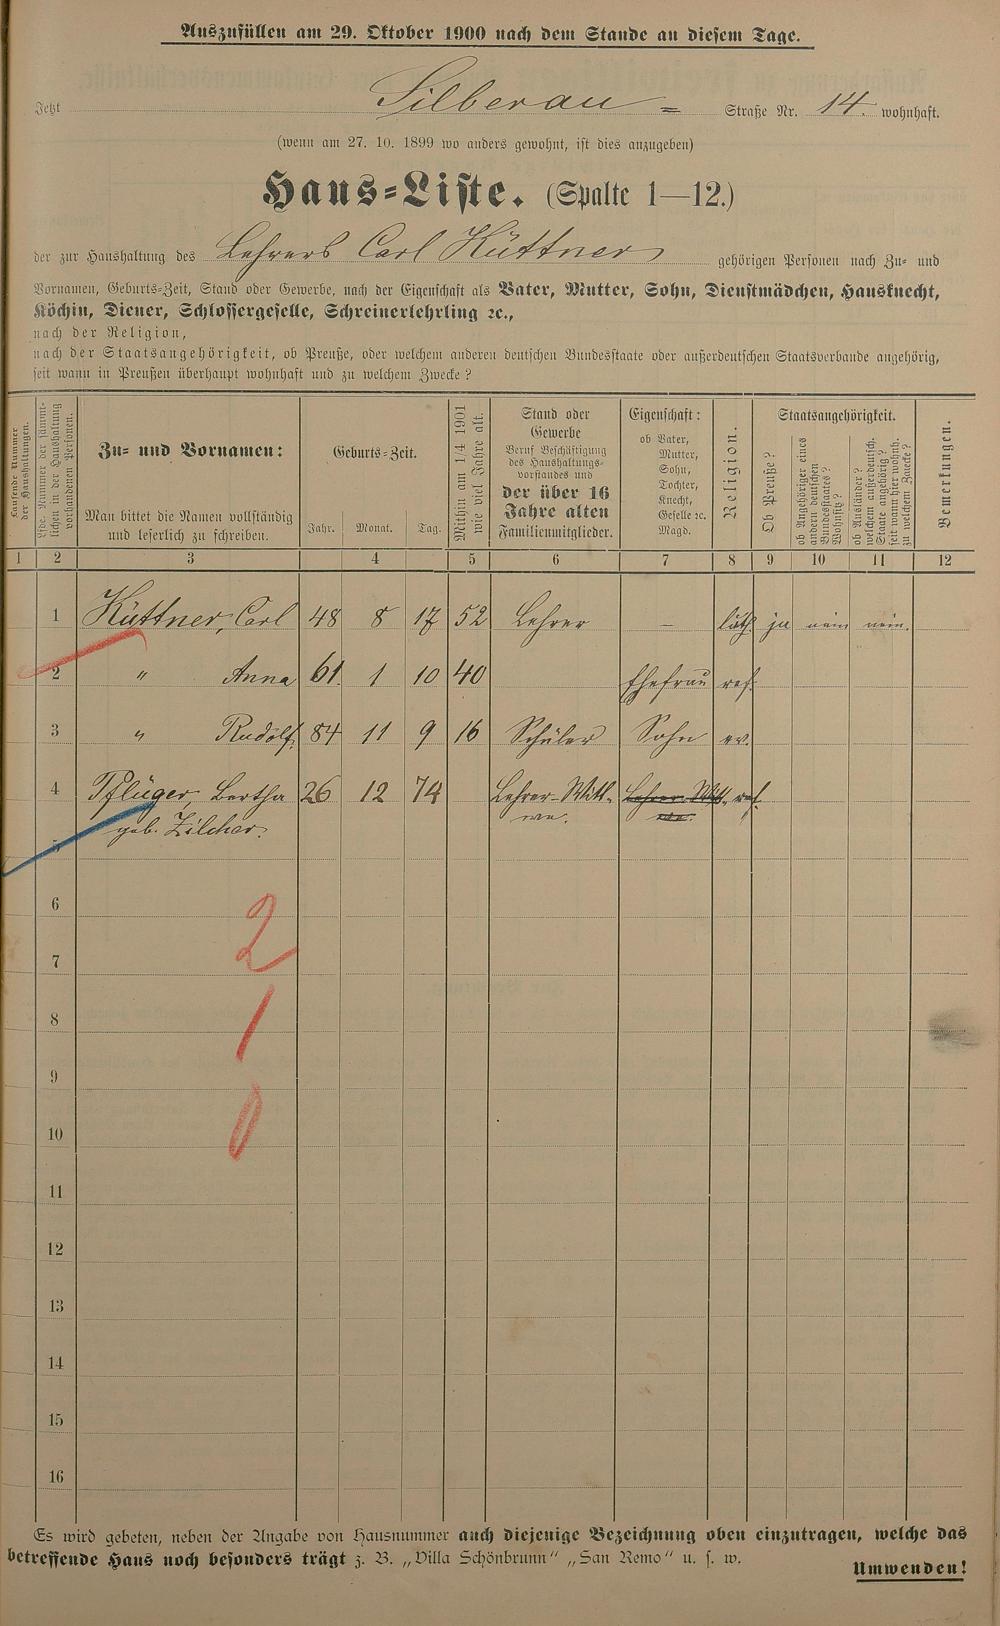 Auszufüllen am 29. Oktober 1900 nach dem Stande an diesem Tage.
Jetzt Silberau = Straße Nr. 14. wohnhaft.
(wenn am 27. 10. 1899 wo anders gewohnt, ist dies anzugeben)
Haus=Liste. (Spalte 1—12.)
der zur Haushaltung des Lehrers Carl Küttner gehörigen Personen nach Zu= und
Vornamen, Geburts=Zeit, Stand oder Gewerbe, nach der Eigenschaft als Vater, Mutter, Sohn, Dienstmädchen, Hausknecht,
Köchin, Diener, Schlossergeselle, Schreinerlehrling ꝛc.,
nach der Religion,
nach der Staatsangehörigkeit, ob Preuße, oder welchem anderen deutschen Bundesstaate oder außerdeutschen Staatsverbande angehörig,
seit wann in Preußen überhaupt wohnhaft und zu welchem Zwecke?
Laufende Nummer
der Haushaltungen.
Lfde. Nummer der sämmt=
lichen in der Haushaltung
vorhandenen Personen.
Zu= und Vornamen:
Man bittet die Namen vollständig
und leserlich zu schreiben.
Geburts=Zeit.
Jahr. Monat. Tag.
Mithin am 1/4 1901
wie viel Jahre alt.
Stand oder
Gewerbe
Beruf Beschäftigung
des Haushaltungs=
vorstandes und
der über 16
Jahre alten
Familienmitglieder.
Eigenschaft:
ob Vater,
Mutter,
Sohn,
Tochter,
Knecht,
Geselle ꝛc.
Magd.
Religion.
Staatsangehörigkeit.
Ob Preuße?
ob Angehöriger eines
andern deutschen
Bundesstaates?
Wohnsitz?
ob Ausländer?
welchem außerdeutsch.
Staate angehörig?
seit wann hier wohnh.
zu welchem Zwecke?
Bemerkungen.
1 2 3 4 5 6 7 8 9 10 11 12
1 Küttner, Carl 48 8 17 52 Lehrer — luth. ja nein nein.
2 " Anna 61. 1 10 40 Ehefrau ref.
3 " Rudolf. 84 11 9 16 Schüler Sohn ev.
4 Pflüger, Bertha 26 12 74 Lehrer-Witt- Lehrer-Witt- ref.
geb. Zilcher. we. we.
5
6
2
7
8
1
9
10
0
11
12
13
14
15
16
Es wird gebeten, neben der Angabe von Hausnummer auch diejenige Bezeichnung oben einzutragen, welche das
betreffende Haus noch besonders trägt z. B. „Villa Schönbrunn“ „San Remo“ u. s. w.
Umwenden!